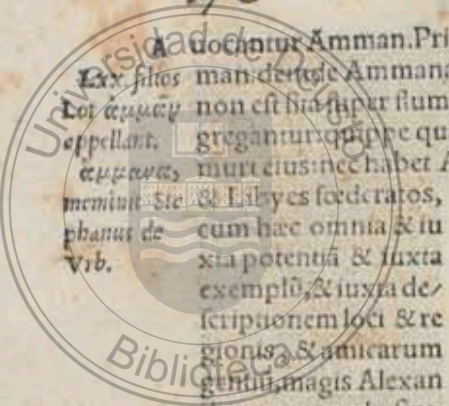 A uocantur Amman. Pri
Lxx filios
Lot αμμαν
appellant.
αμμανα,
meminit Ste
phanus de
Vrb.
man deinde Ammana
non est sita super flum
gregantur: quippe qu
muri eius: nec habet A
& Libyes fœderatos,
cum hæc omnia & iu
xta potentiã & iuxta
exemplũ, & iuxta de/
scriptionem loci & re
gionis, & amicarum
gentiũ, magis Alexan
Universidad de Deusto
Biblioteca